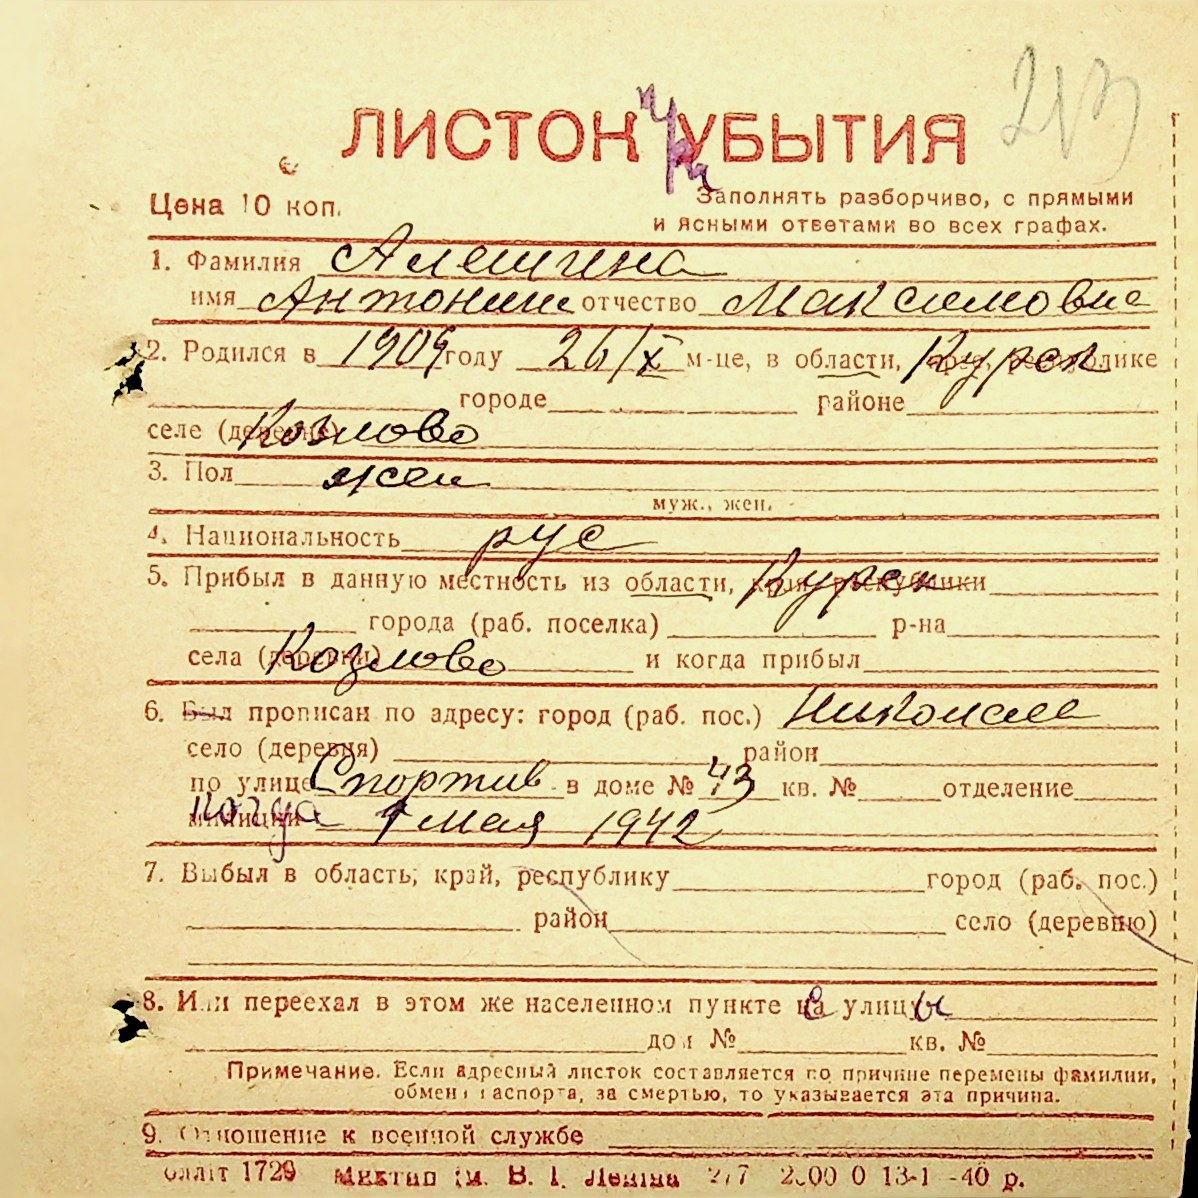 213
ЛИСТОК УБЫТИЯ
Цена 10 коп.
Заполнять разборчиво, с прямыми
и ясными ответами во всех графах.
1. Фамилия Алешина
имя Антонин отчество Максимовне
2. Родился в 1909 году 26/X м-це, в области, крае, республике Курск
городе районе
селе (деревне) Козлово
3. Пол жен
муж., жен.
4. Национальность рус
5. Прибыл в данную местность из области, края, республики Курск
города (раб. поселка) р-на
села (деревни) Козлово и когда прибыл
6. Был прописан по адресу: город (раб. пос.) Николаев
село (деревня) район
по улице Спортив в доме № 43 кв. № отделение
милиции когда 1 мая 1942
7. Выбыл в область, край, республику город (раб. пос.)
район село (деревню)
8. Или переехал в этом же населенном пункте с улицы
дом № кв. №
Примечание. Если адресный листок составляется по причине перемены фамилии,
обмена паспорта, за смертью, то указывается эта причина.
9. Отношение к военной службе
1729 В. І. Леніна 13-1 -40 р.